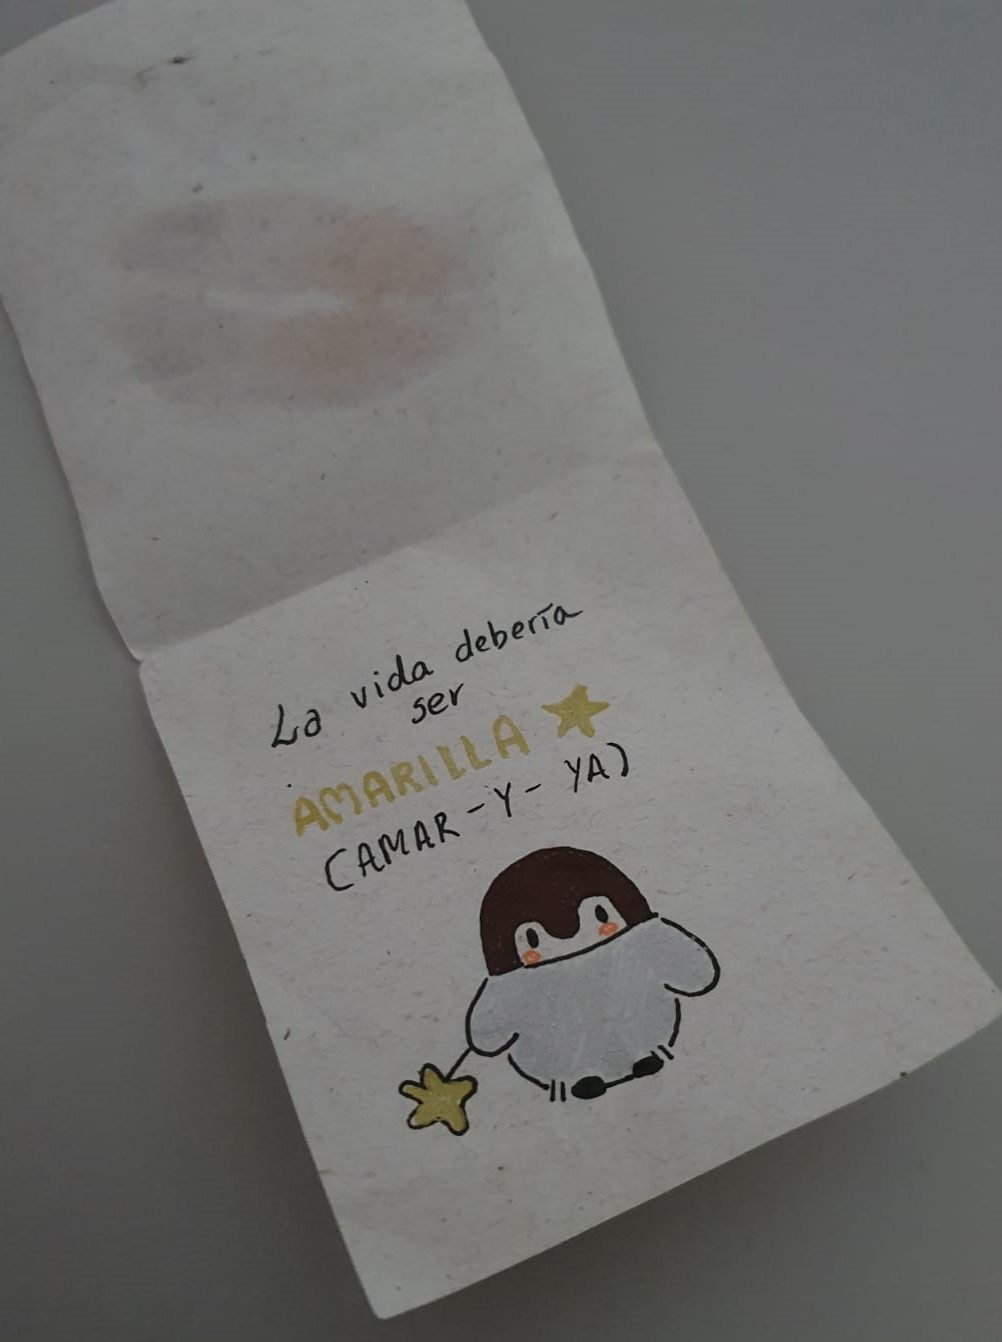 La vida debería
ser
AMARILLA
(AMAR-Y-YA)